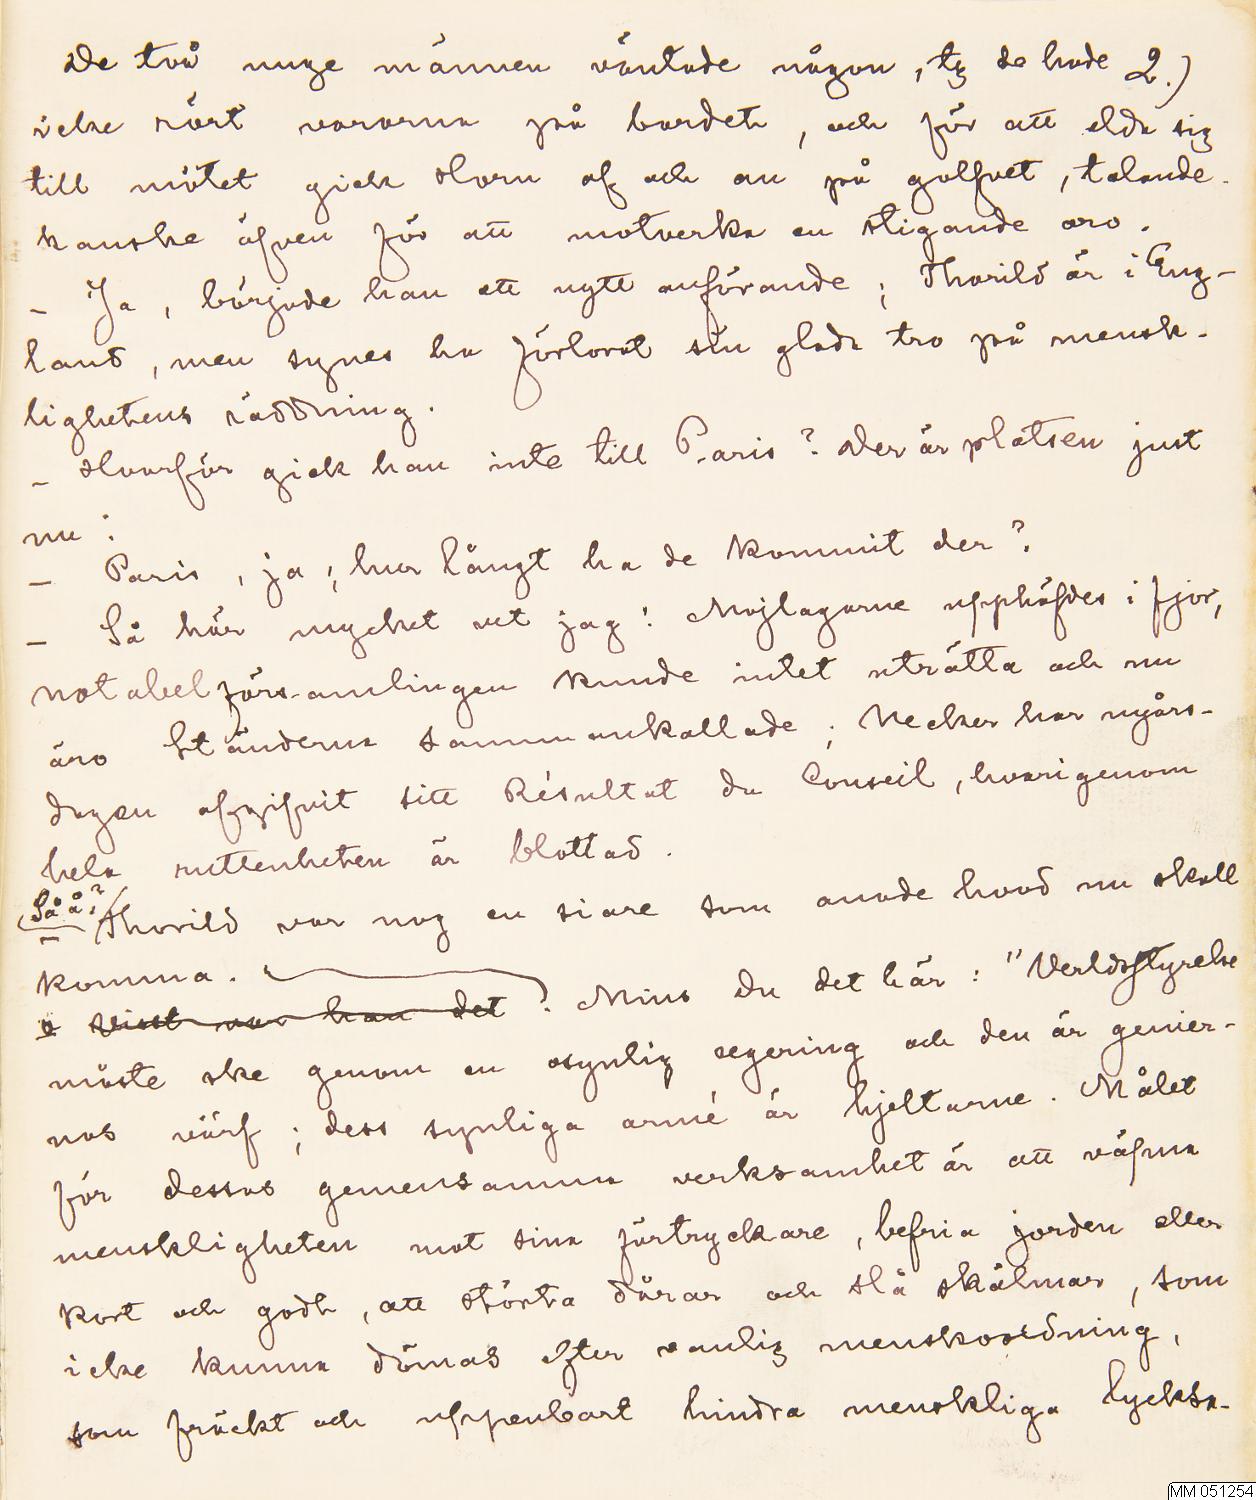 De två unge männen väntade någon, ty de hade 2.)
icke rört vararna på bordet, och för att elda sig
till mötet gick Horn af och an på golfvet, talande
kanske äfven för att motverka en stigande oro.
- Ja, började han ett nytt anförande; Thorild är i Eng-
land, men synes ha förlorat sin glada tro på mensk-
lighetens räddning.
- Hvarför gick han inte till Paris? Der är platsen just
nu!
- Paris, ja; hur långt ha de kommit der?
- Så här mycket vet jag: Nöjlagarne upphäfdes i fjor,
notabelförsamlingen kunde intet uträtta och nu
äro Ständerna sammankallade; Necker har nyårs-
dagen afgifvit sitt Résultat du Conseil, hvarigenom
hela ruttenheten är blottad.
Så å?
- Thorild var nog en siare som anade hvad nu skall
komma.
- Visst var han det. Mins du det här: "Verldsstyrelse
måste ske genom en osynlig regering och den är genier-
nas värf; dess synliga armé är hjeltarne. Målet
för dessas gemensamma verksamhet är att väpna
menskligheten mot sina förtryckare, befria jorden eller
kort och godt, att störta dårar och slå skälmar, som
icke kunna dömas efter vanlig menskoordning,
som fräckt och uppenbart hindra menskliga lycksa-
MM 051254